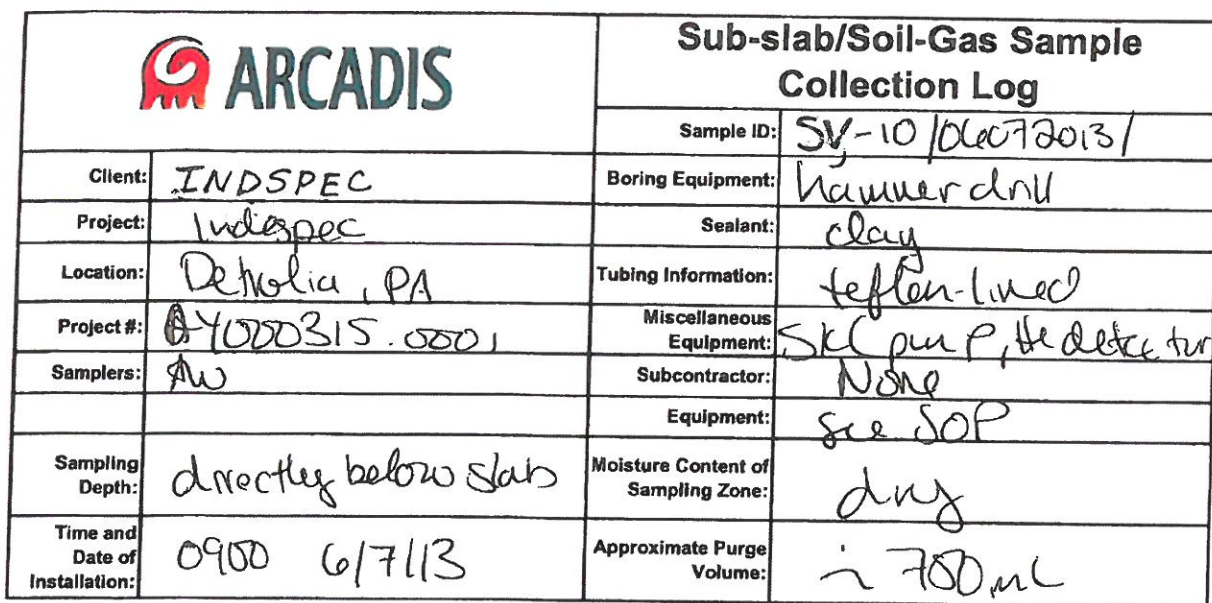 ARCADIS
Sub-slab/Soil-Gas Sample
Collection Log
Sample ID: SV-10/06072013/
Client: INDSPEC
Boring Equipment: hammer drill
Project: Indespec
Sealant: clay
Location: Petrolia, PA
Tubing Information: teflon-lined
Project #: AY000315.0001
Miscellaneous
Equipment: SKC pump, He detector
Samplers: AW
Subcontractor: None
Equipment: see SOP
Sampling
Depth: directly below slab
Moisture Content of
Sampling Zone: dry
Time and
Date of
Installation: 0900 6/7/13
Approximate Purge
Volume: ~ 700 mL